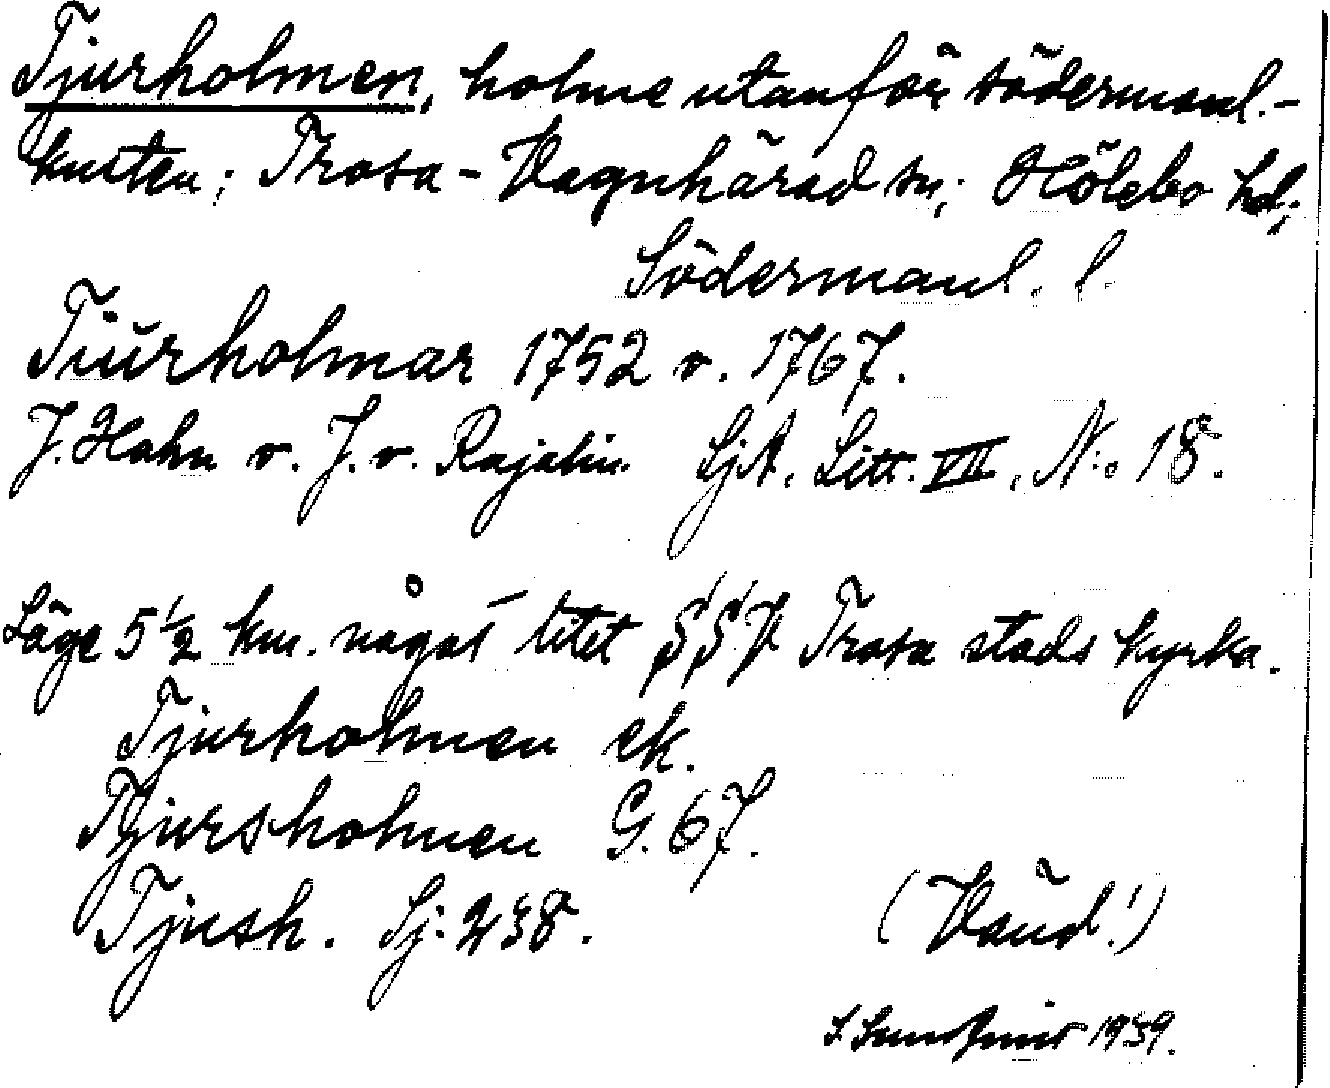 Tjurholmen, holme utanför södermanl.-
kusten; Trosa-Vagnhärad sn; Hölebo hd;
Södermanl. l.
Tiurholmar 1752 o. 1767.
J. Hahn o. J. v. Rajalin SjA. Litt. VII. N:o 18.
Läge 5 1/2 km. något litet S S V Trosa stads kyrka.
Tjurholmen ek.
Tjursholmen G. 67.
Tjush. Sj: 238.
(Vänd!)
1939.